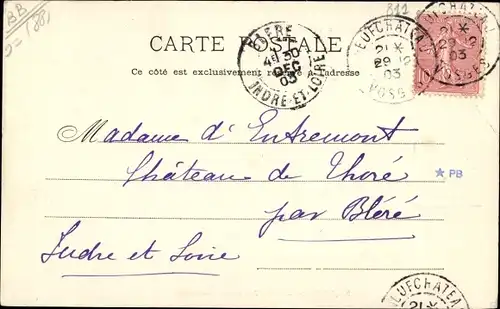 BB
811
CARTE POSTALE
Ce côté est exclusivement réservé à l'adresse
BLÉRÉ
30
DEC
03
INDRE-ET-LOIRE
NEUFCHATEAU
21 *
29 12
03
VOSGES
NEUFCHATEAU
21 *
29
03
VOSGES
Madame d'Entremont
Château de Thoré
★ PB
par Bléré
Indre et Loire
NEUFCHATEAU
21 *